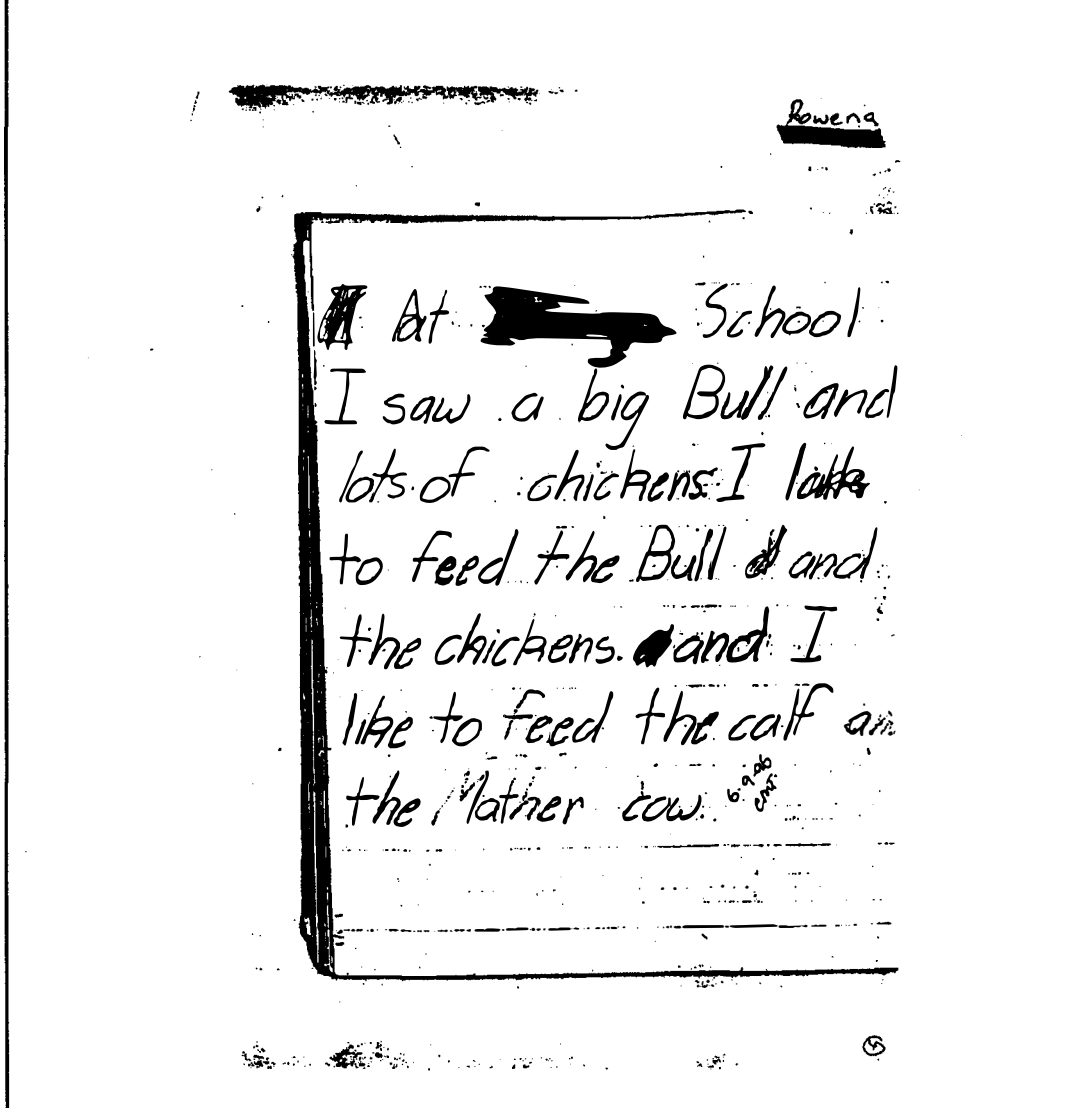 Rowena
At School
I saw a big Bull and
lots of chickens. I like
to feed the Bull and
the chickens. and I
like to feed the calf an
the Mather cow. 6.9.06